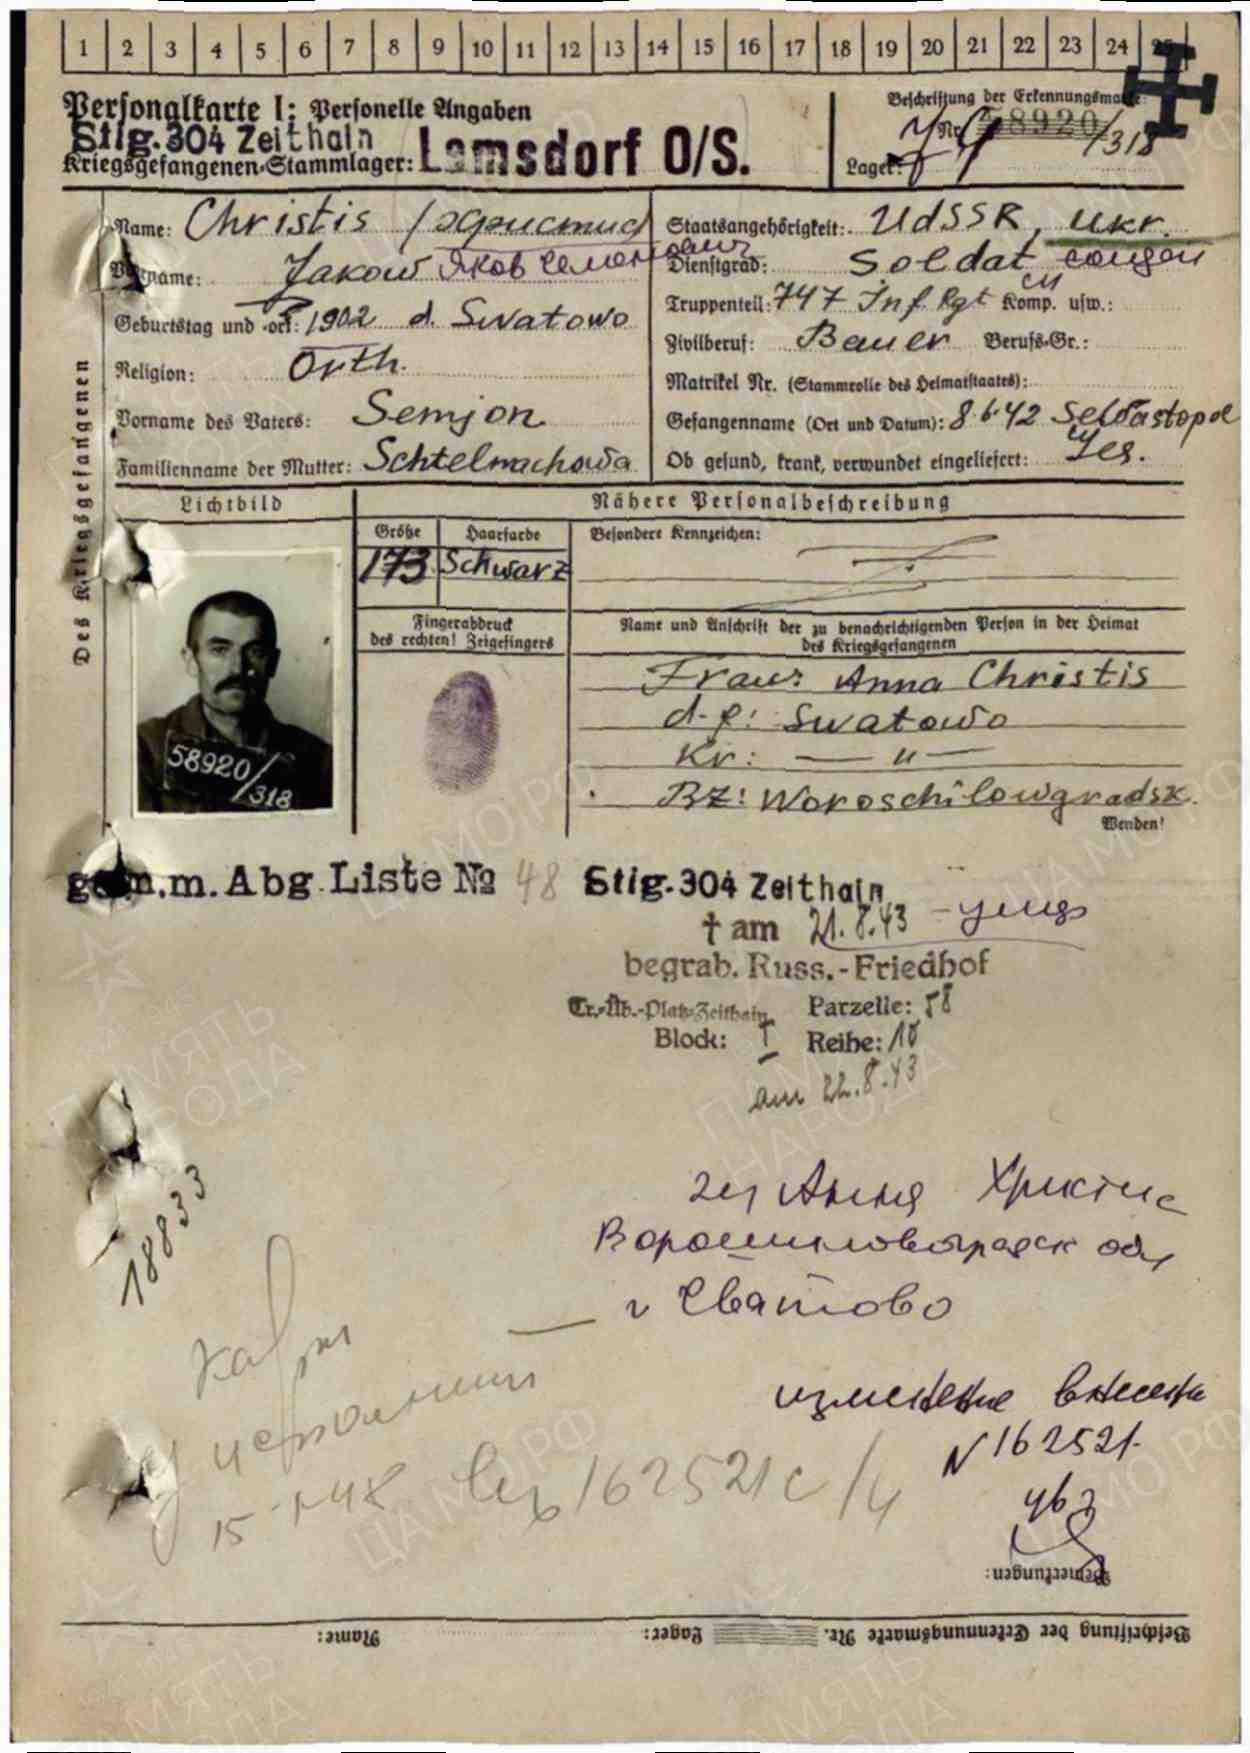 1 2 3 4 5 6 7 8 9 10 11 12 13 14 15 16 17 18 19 20 21 22 23 24 25
Personalkarte I: Personelle Angaben
Beschriftung der Erkennungsmarke:
Stlg. 304 Zeithain
Kriegsgefangenen-Stammlager: Lamsdorf O/S.
Nr. 58920/318
Lager:
Des Kriegsgefangenen
Name: Christis /Христис
Vorname: Jakow Яков Семенович
Geburtstag und -ort: 1902 d. Swatowo
Religion: Orth.
Vorname des Vaters: Semjon
Familienname der Mutter: Schtelmachowa
Staatsangehörigkeit: UdSSR, Ukr.
Dienstgrad: Soldat солдат
Truppenteil: 747 Inf. Rgt Komp. usw.:
Zivilberuf: Bauer Berufs-Gr.:
Matrikel Nr. (Stammrolle des Heimatstaates):
Gefangenname (Ort und Datum): 8.6.42 Sewastopol
Ob gesund, krank, verwundet eingeliefert: Ges.
Lichtbild
Nähere Personalbeschreibung
Größe
173
Haarfarbe
Schwarz
Besondere Kennzeichen:
Fingerabdruck
des rechten! Zeigefingers
58920/318
Name und Anschrift der zu benachrichtigenden Person in der Heimat
des Kriegsgefangenen
Frau: Anna Christis
d-f: Swatowo
Kr: — " —
BZ: Woroschilowgradsk.
Wenden!
gem.m. Abg. Liste № 48
Stlg. 304 Zeithain
† am 21.8.43 -умер
begrab. Russ.-Friedhof
Tr.-Üb.-Platz-Zeithain Parzelle: 58
Block: I Reihe: 10
am 22.8.43
18833
Анна Христис
Ворошиловградск обл
г Сватово
изменение внесены
N 162521
15-1-48 162521с /4
Bemerkungen:
Beschriftung der Erkennungsmarke Nr. Lager: Name:
ПАМЯТЬ НАРОДА
ЦАМО РФ